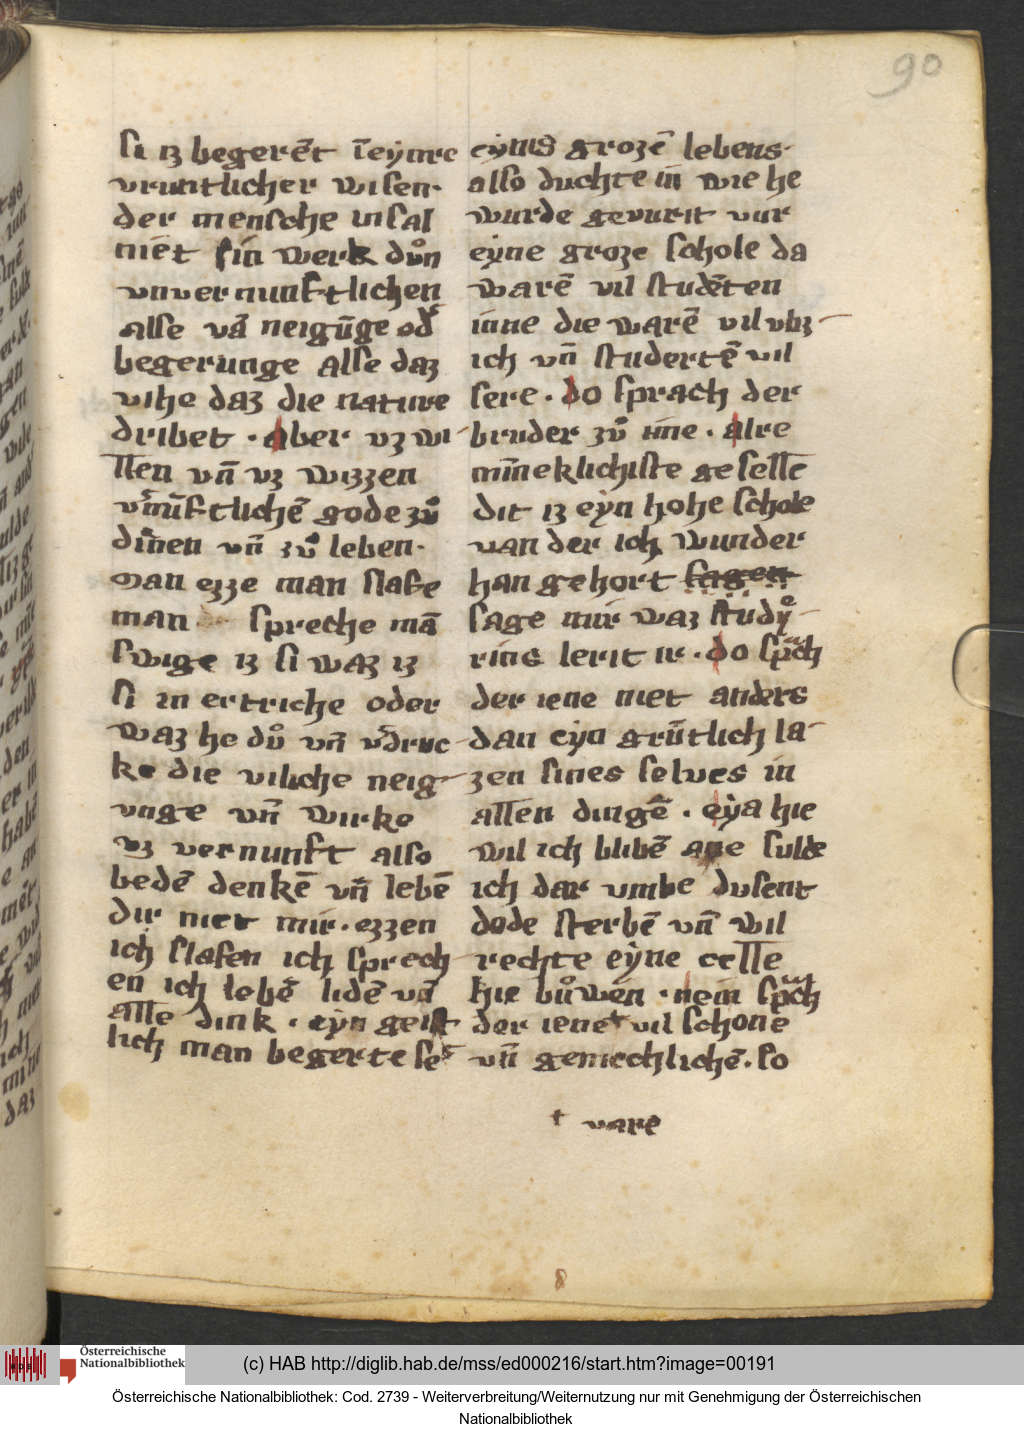 90
si iz begerēt īeẏme
vruntlicher wisen·
der mensche insal
niet sin werk duͦn
vnvernunftlichen
alse vā neigūge od
begerunge alse daz
vihe daz die nature
dribet · aber vz wi
llen vn̄ vz wizzen
vnūftlichē gode zuͦ
dinen vn̄ zuͦ leben·
man ezze man slafe
man spreche mā
swige iz si waz iz
si in ertriche oder
waz he duͦ vn̄ vdruc
ke die viliche neig
unge vn̄ wirke
vz vernunft also
bedē denkē vn̄ lebē
dir niet mir · ezzen
ich slafen ich sprech
en ich lebē lidē vn̄
alle dink · eẏn geist
lich man begerte se
eẏnis grozē lebens·
also duchte in wie he
wurde gevurit vur
eẏne groze schole da
warē vil studēten
inne die warē vil vliz
ich vn̄ studertē vil
sere · do sprach der
bruder zuͦ ime · alre
mīneklichiste geselle
dit iz eẏn hohe schole
van der ich wunder
han gehort sagen
sage mir waz studẏ
rins lerit ir · do spͣch
der iene niet anders
dan eẏn grūtlich la
zen sines selves in
allen dingē · eẏa hie
wil ich blibē ane sulde
ich dar vmbe dusent
dode sterbē vn̄ wil
rechte eẏne celle
hie buͦwen · nein spͣch
der iene vil schone
vn̄ gemechlichē · so
vare
8
Österreichische
Nationalbibliothek
(c) HAB http://diglib.hab.de/mss/ed000216/start.htm?image=00191
Österreichische Nationalbibliothek: Cod. 2739 - Weiterverbreitung/Weiternutzung nur mit Genehmigung der Österreichischen
Nationalbibliothek